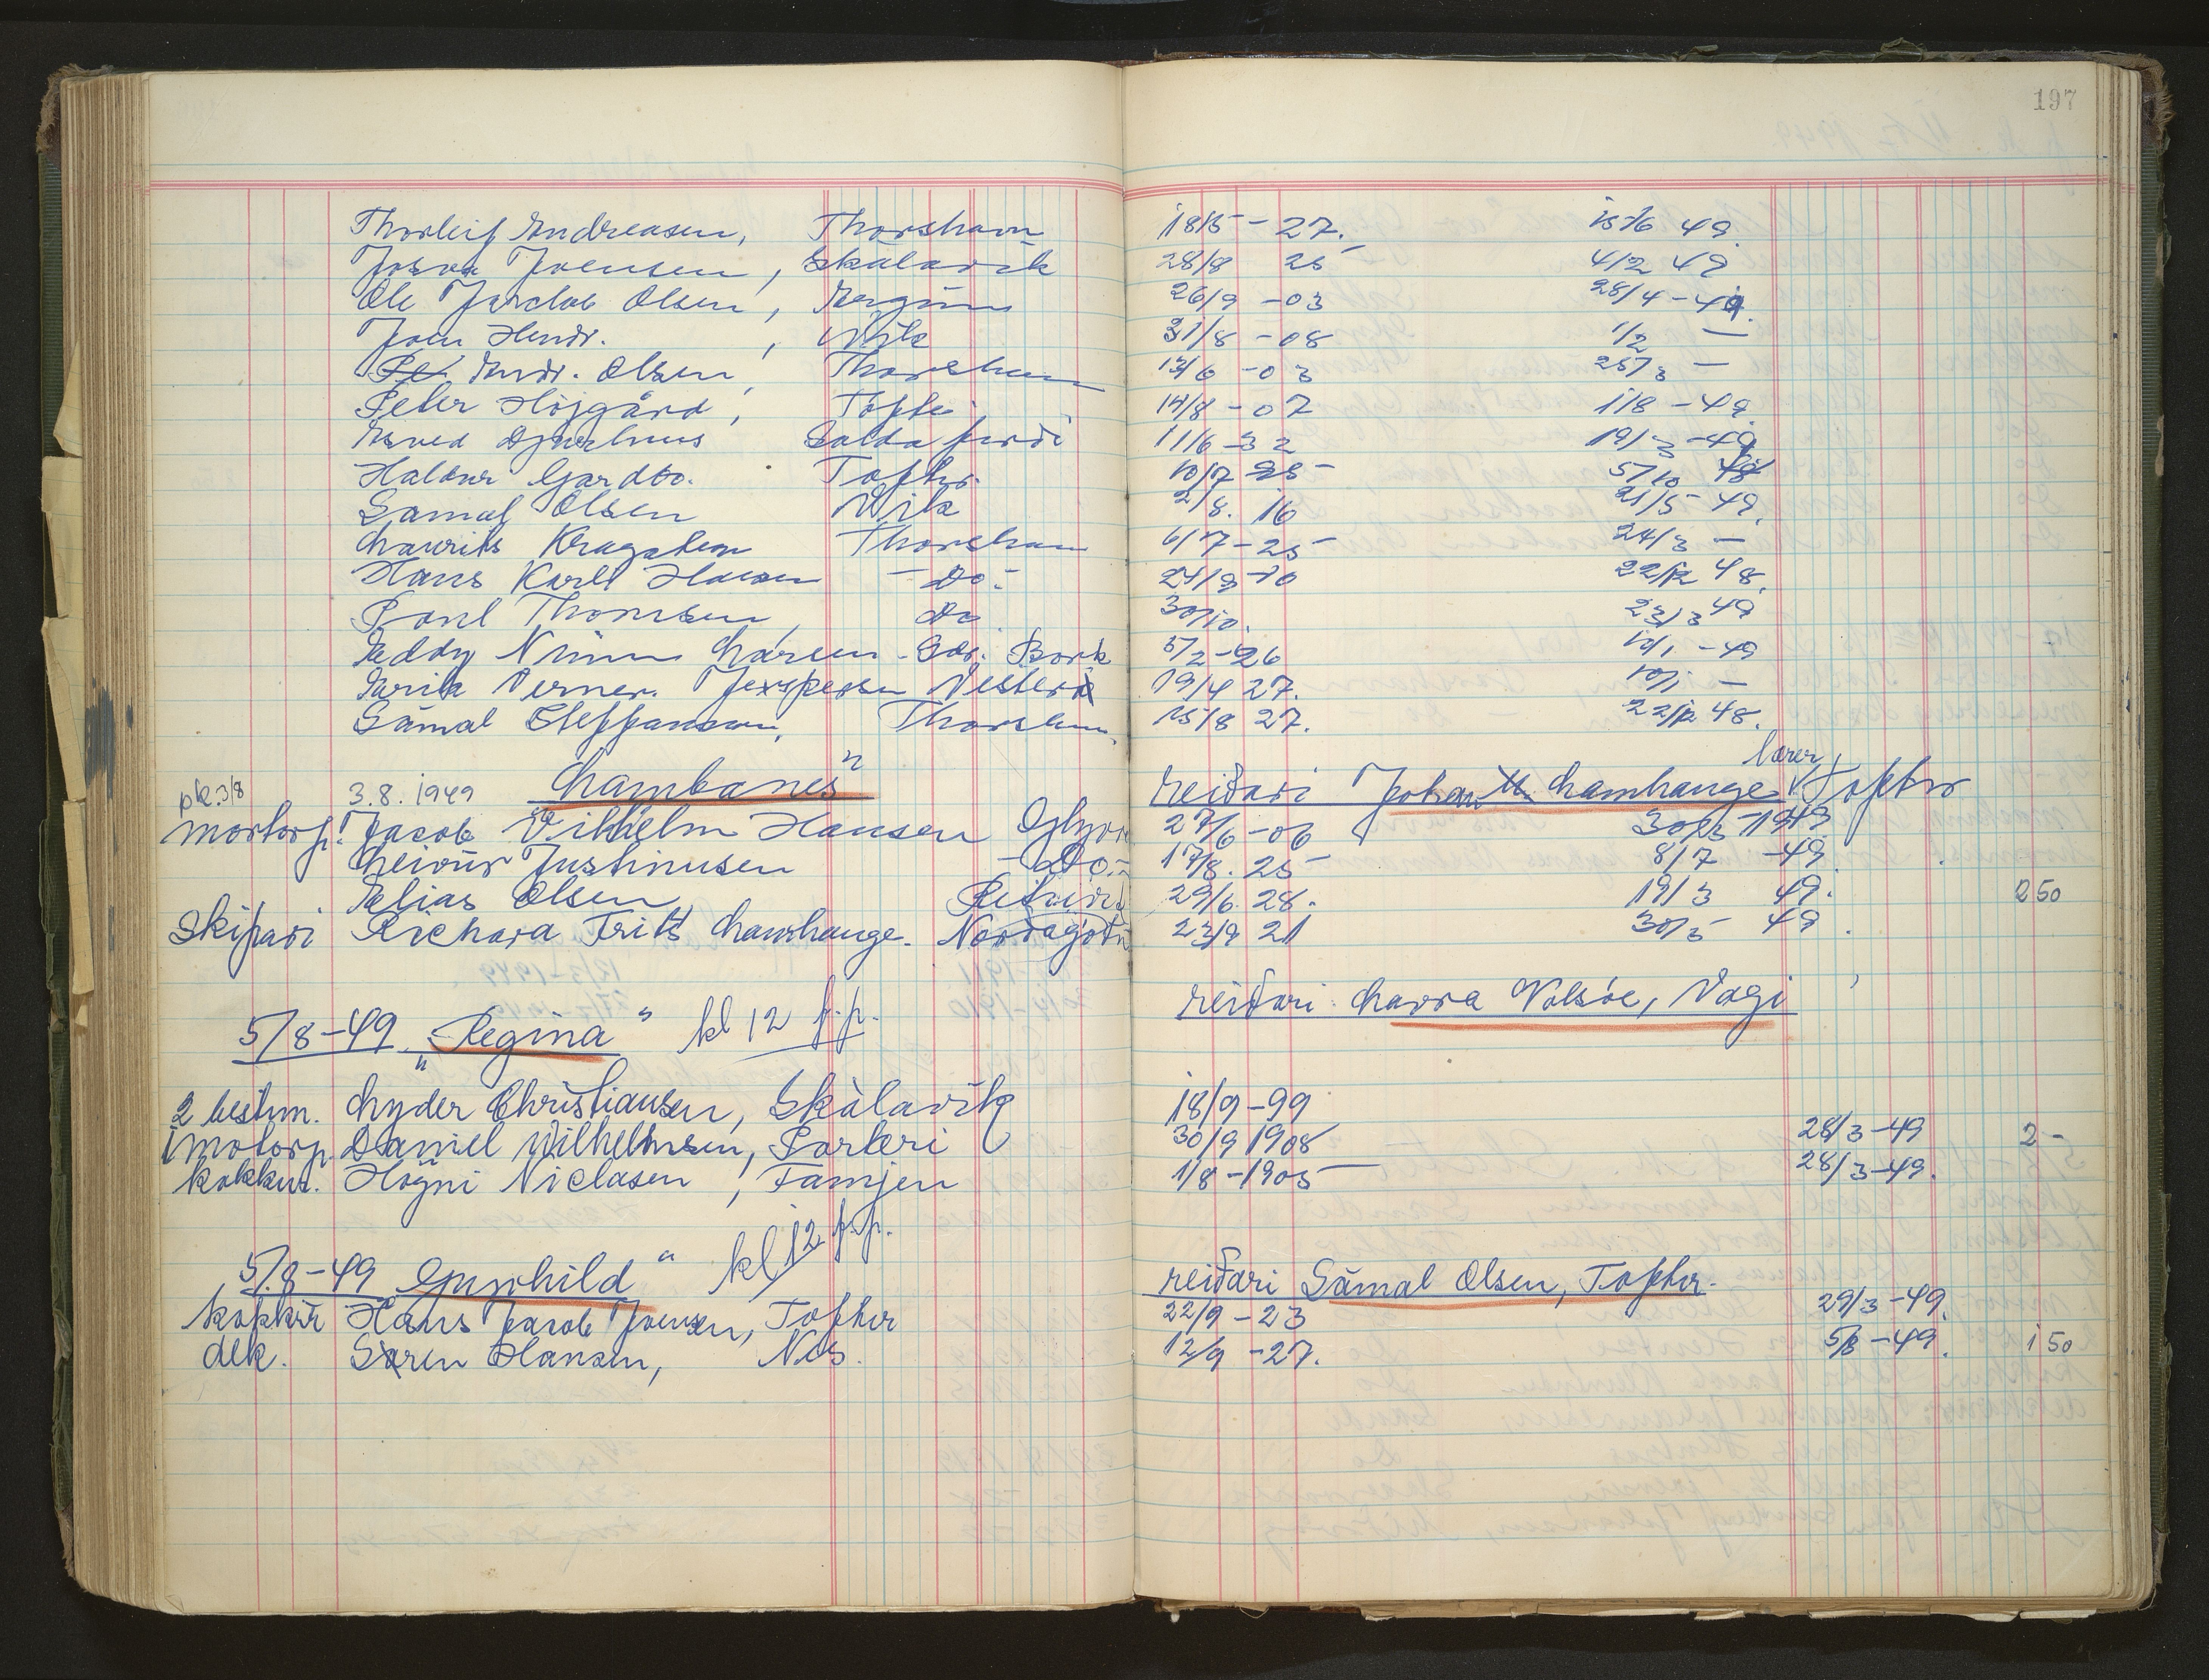 197
Thorleif Andreasen, Thorshavn 18/5 - 27. 15/6 49.
Josva Joensen, Skálavik 28/8 25 4/2 49
Ole Jacob Olsen, 26/9 - 03 28/4 - 49.
Joen Hendr. , Vik 31/8 - 08 1/2 —
Andr. Olsen, Thorshavn 13/6 - 03 25/3 —
Peter Højgård, Tófte 14/8 - 07 1/8 - 49.
Djurhuus Salda firði 11/6 - 32 19/3 - 49
Haldur Gardbo. Toftir. 10/7 25 5/10 48
Samal Olsen Vik 2/8. 16 21/5 - 49.
Laurits Kragsten Thorshavn 6/7 - 25 24/3 —
Hans Karl Hansen - Do - 24/9 - 10 22/12 48.
Poul Thomsen, Do 30/10. 23/3 49
Eddy Larsen - Bork 5/2 - 26 10/1 - 49
Verner. Jexspersen 19/4 27. 10/1 —
Sámal Steffansson, Thorshavn. 15/8 27. 22/12 48.
pk. 3/8 3.8.1949 Lambanes" reiðari Johan M. Lamhauge lærer, Toftir
motorp! Jacob Vilhelm Hansen Glyvr 27/6 - 06 30/3 - 1949
Leivur Justinusen - Do - 17/8. 25 8/7 - 49.
Elias Olsen, 29/6. 28. 19/3 49. 2 50
Skipari Richard Fritts Lamhauge. Norðagøtu 23/9 21 30/5 49.
5/8 - 49 „Regina" kl 12 f.p. reiðari Vági
2 bestm. Lyder Christiansen, Skálavik 18/9 - 99
1 motorp. Daniel Vilhelmsen, Porkeri 30/9 1908 28/3 - 49 2 -
kokkur. Høgni Niclasen, Famjen 1/8 - 1905 28/3 - 49.
5/8 - 49 Gunhild" kl 12 f.p. reiðari Sámal Olsen, Toftir.
kokkur Hans Jacob Joensen, Toftir 22/9 - 23 29/3 - 49.
dek. Søren Hansen, Nes. 12/9 - 27. 5/8 - 49. 1 50